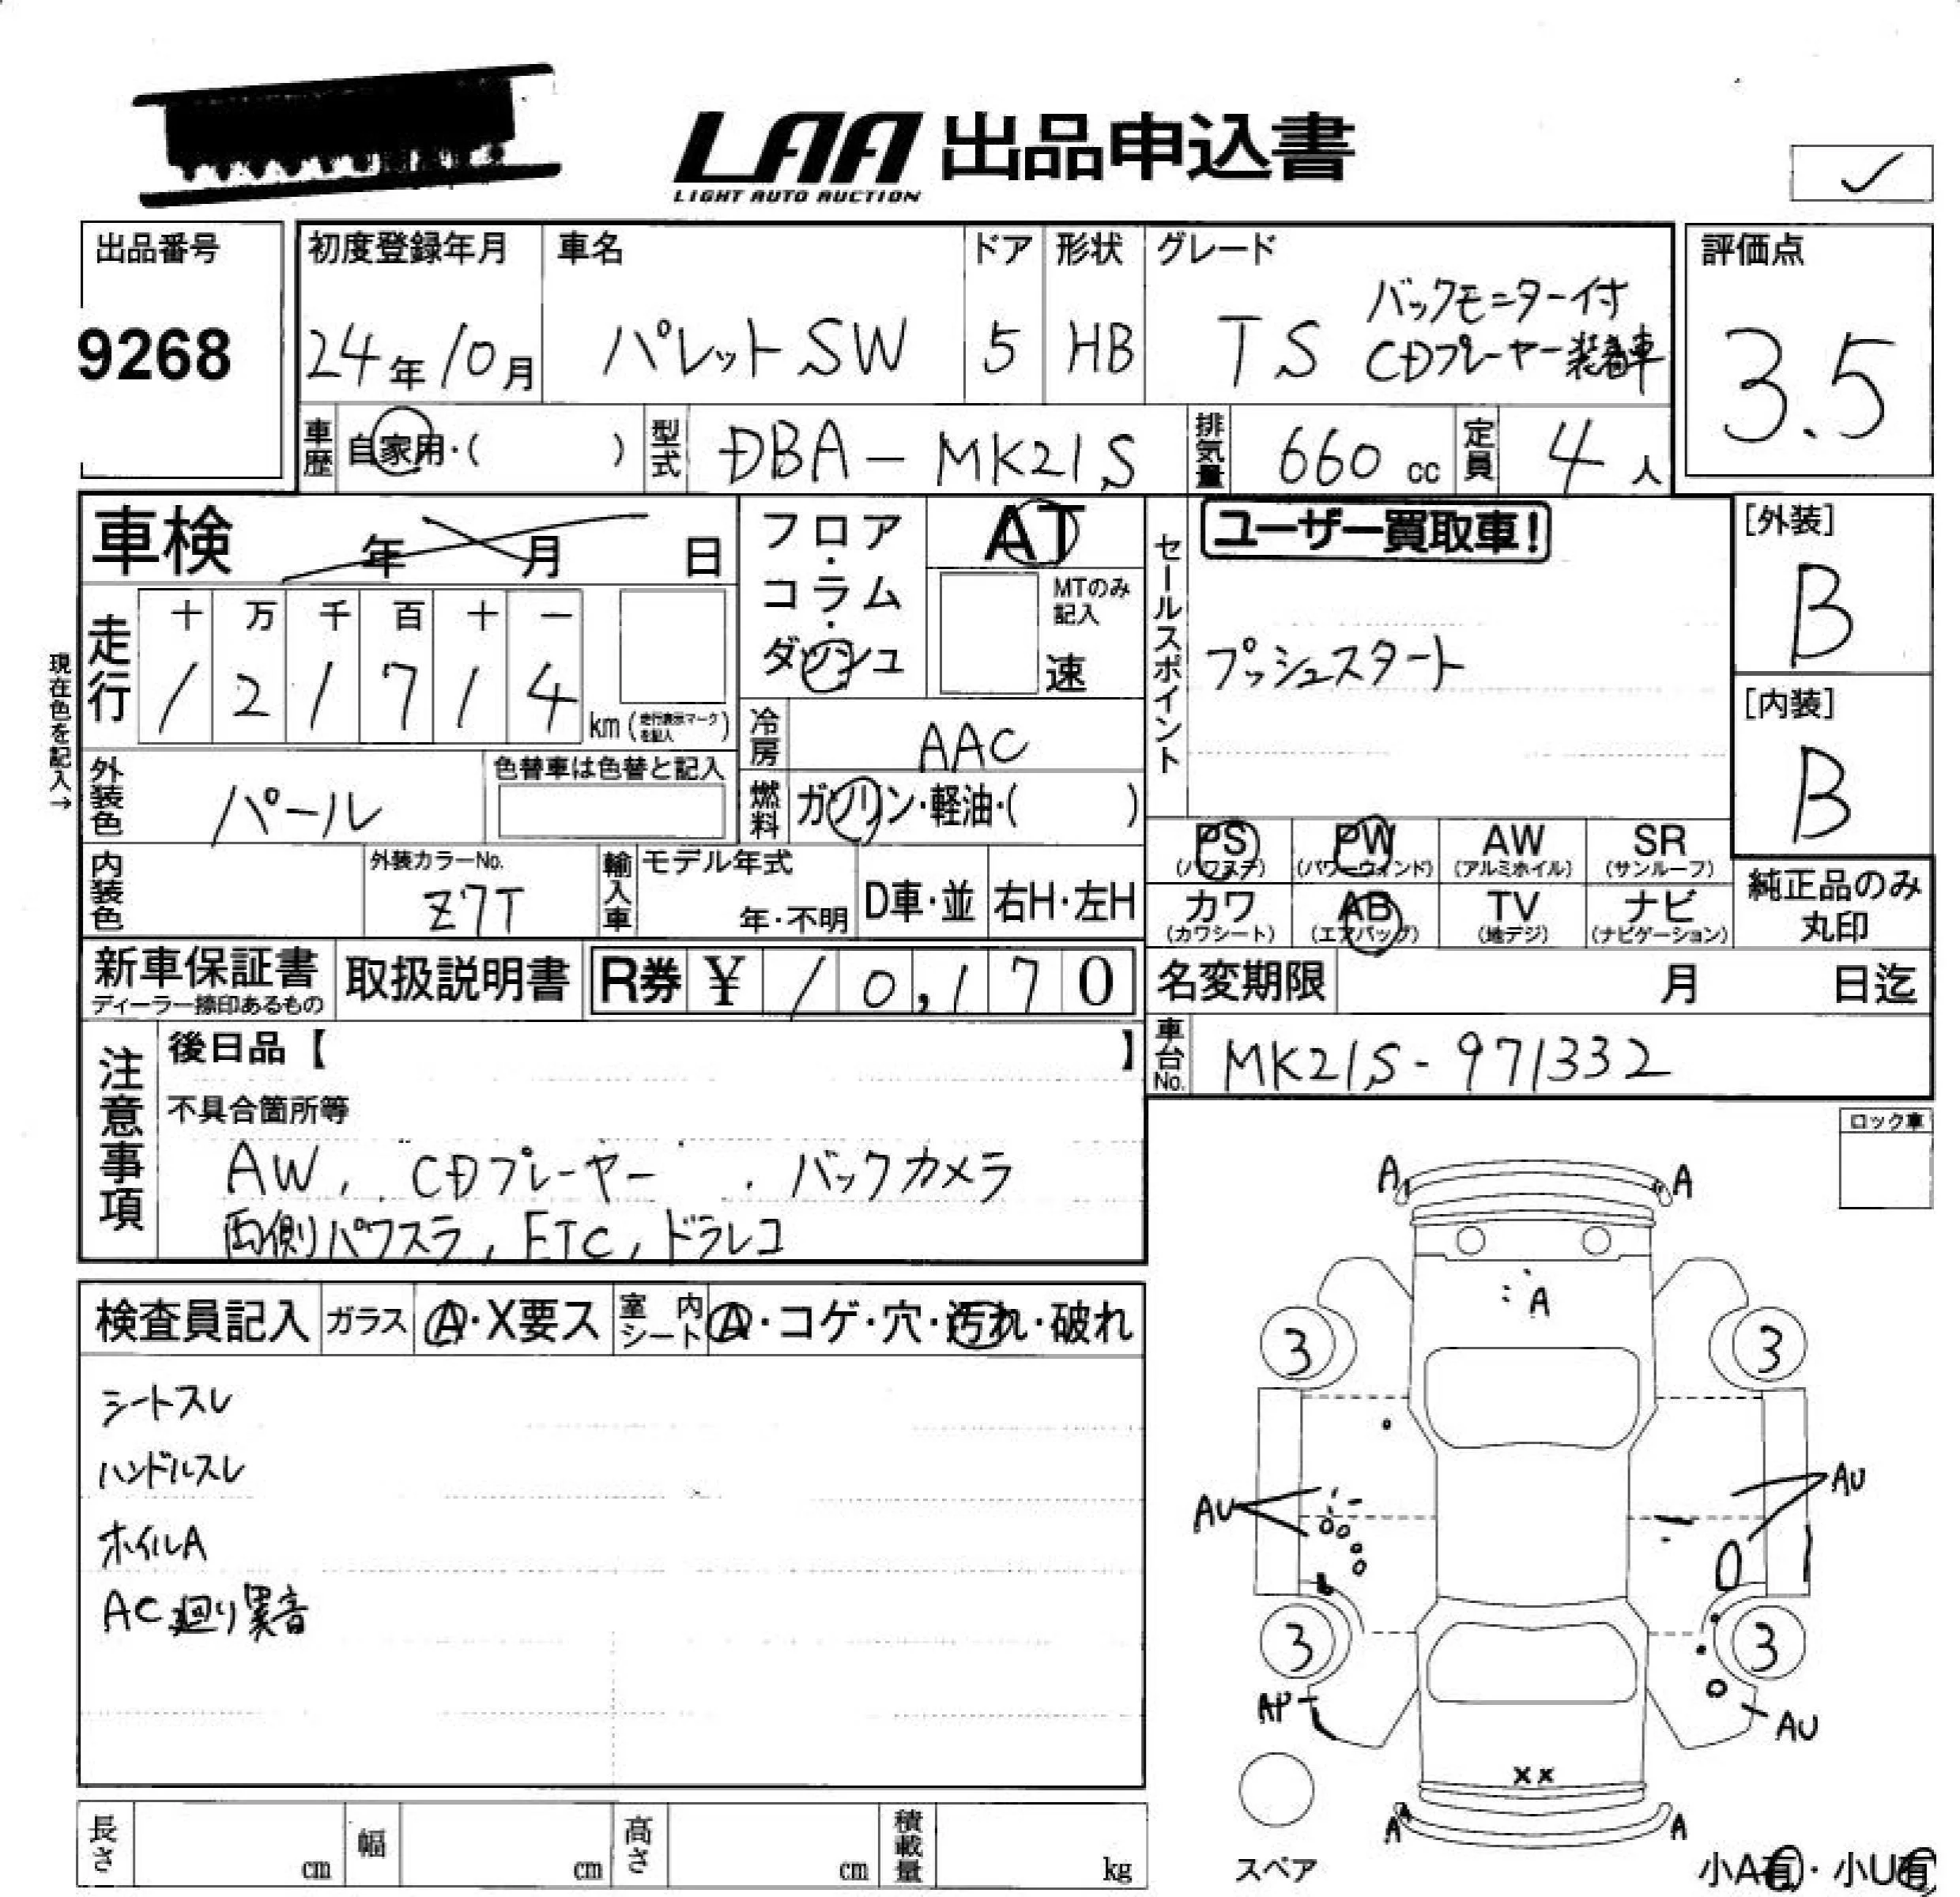 LAA 出品申込書
LIGHT AUTO AUCTION
✓
出品番号
9268
初度登録年月
24年10月
車名
パレットSW
ドア
5
形状
HB
グレード
TS バックモニター付
CDプレーヤー装着車
評価点
3.5
車歴 自家用・( )
型式 DBA-MK21S
排気量 660 cc
定員 4人
車検 年 月 日
現在色を記入→
走行 十 万 千 百 十 一
1 2 1 7 1 4 km (走行表示マークを記入)
フロア・コラム・ダッシュ
AT
MTのみ記入
速
冷房 AAC
燃料 ガソリン・軽油・( )
セールスポイント
ユーザー買取車!
プッシュスタート
[外装]
B
[内装]
B
外装色 パール
色替車は色替と記入
内装色
外装カラーNo.
Z7T
輸入車 モデル年式
年・不明
D車・並
右H・左H
PS (パワステ)
PW (パワーウィンド)
AW (アルミホイル)
SR (サンルーフ)
カワ (カワシート)
AB (エアバッグ)
TV (地デジ)
ナビ (ナビゲーション)
純正品のみ
丸印
新車保証書
ディーラー捺印あるもの
取扱説明書
R券 ¥ 10,170
名変期限 月 日迄
車台No. MK21S-971332
注意事項
後日品【 】
不具合箇所等
AW, CDプレーヤー, バックカメラ
両側パワスラ, ETC, ドラレコ
ロック車
検査員記入
ガラス A・X要ス
室内シート A・コゲ・穴・汚れ・破れ
シートスレ
ハンドルスレ
ホイルA
AC廻り異音
A A
A
3 3
AU AU
3 3
AP AU
XX
A A
スペア
小A有・小U有
長さ cm
幅 cm
高さ cm
積載量 kg